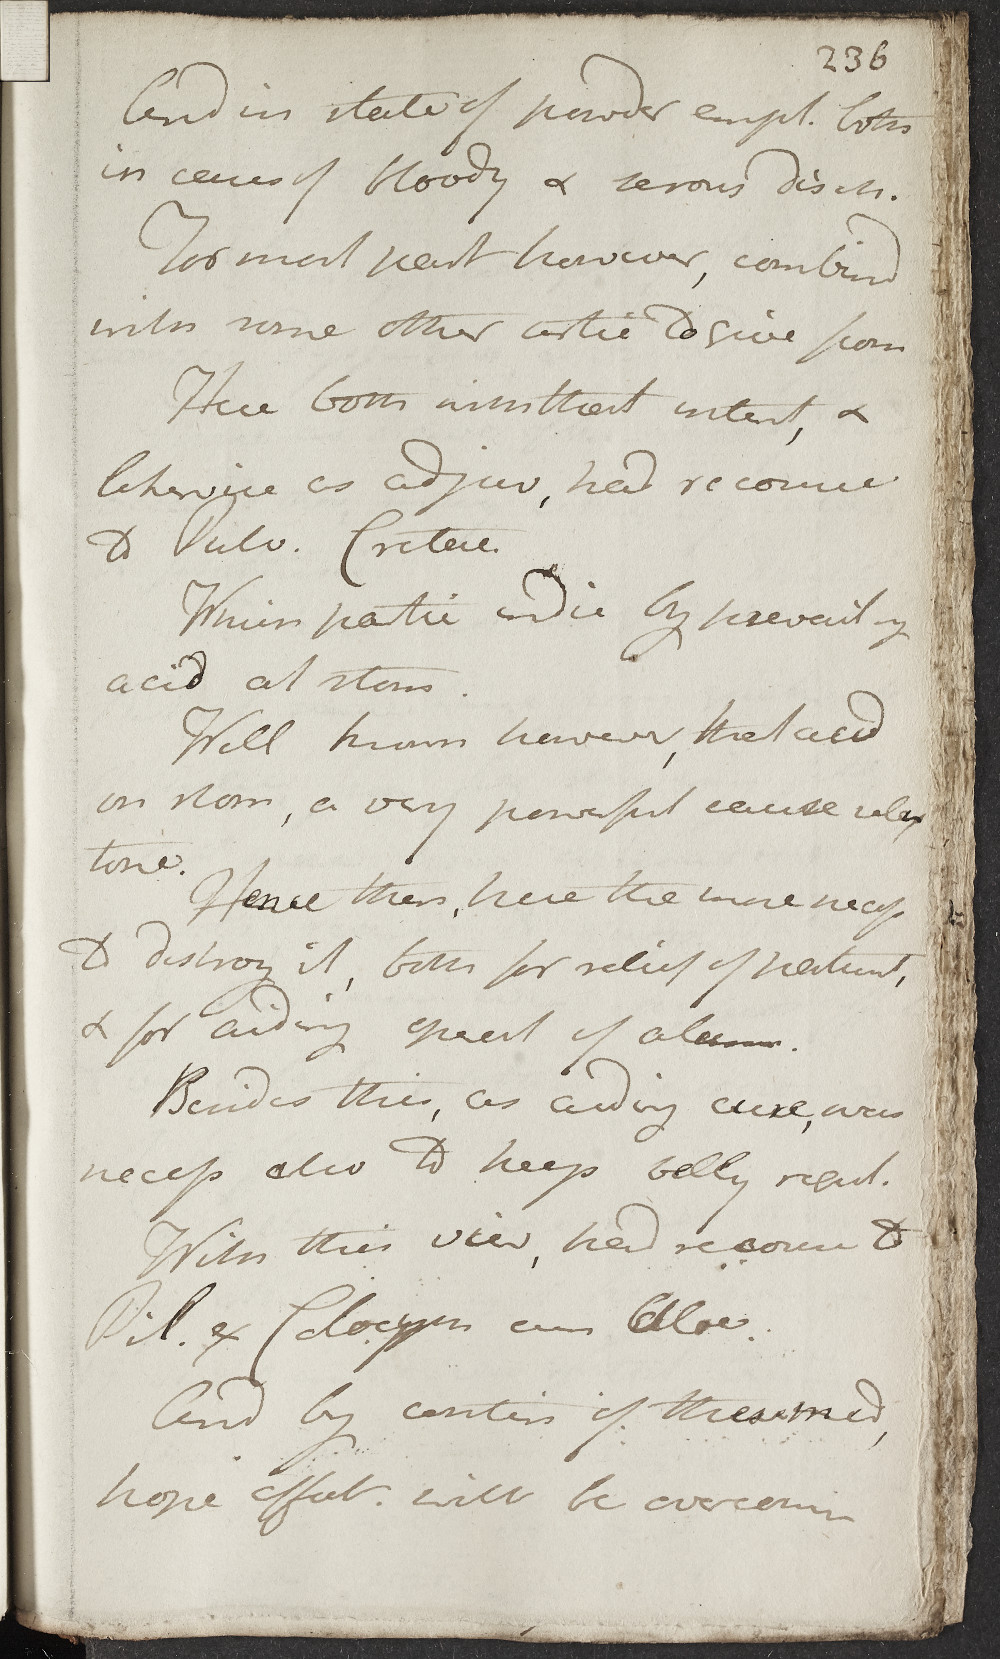 236
And in state of powder empl. both
in cases of bloody & serous disch.
For most part however, combind
with some other astr to give form
Here both with that intent, &
likewise as adjuv, had recourse
to Pulv. Cretac.
Which partic indic by prevailing
acid at stom.
Well known however, that acid
on stom, a very powerful cause relax
tone.
Hence then, here the more necess
to destroy it, both for relief of patient,
& for aiding effect of alum.
Besides this, as aiding cure, was
necess also to keep belly regul.
With this view, had recourse to
Pil. ex Colocynth cum Aloe.
And by contin of these med,
hope affect. will be overcome